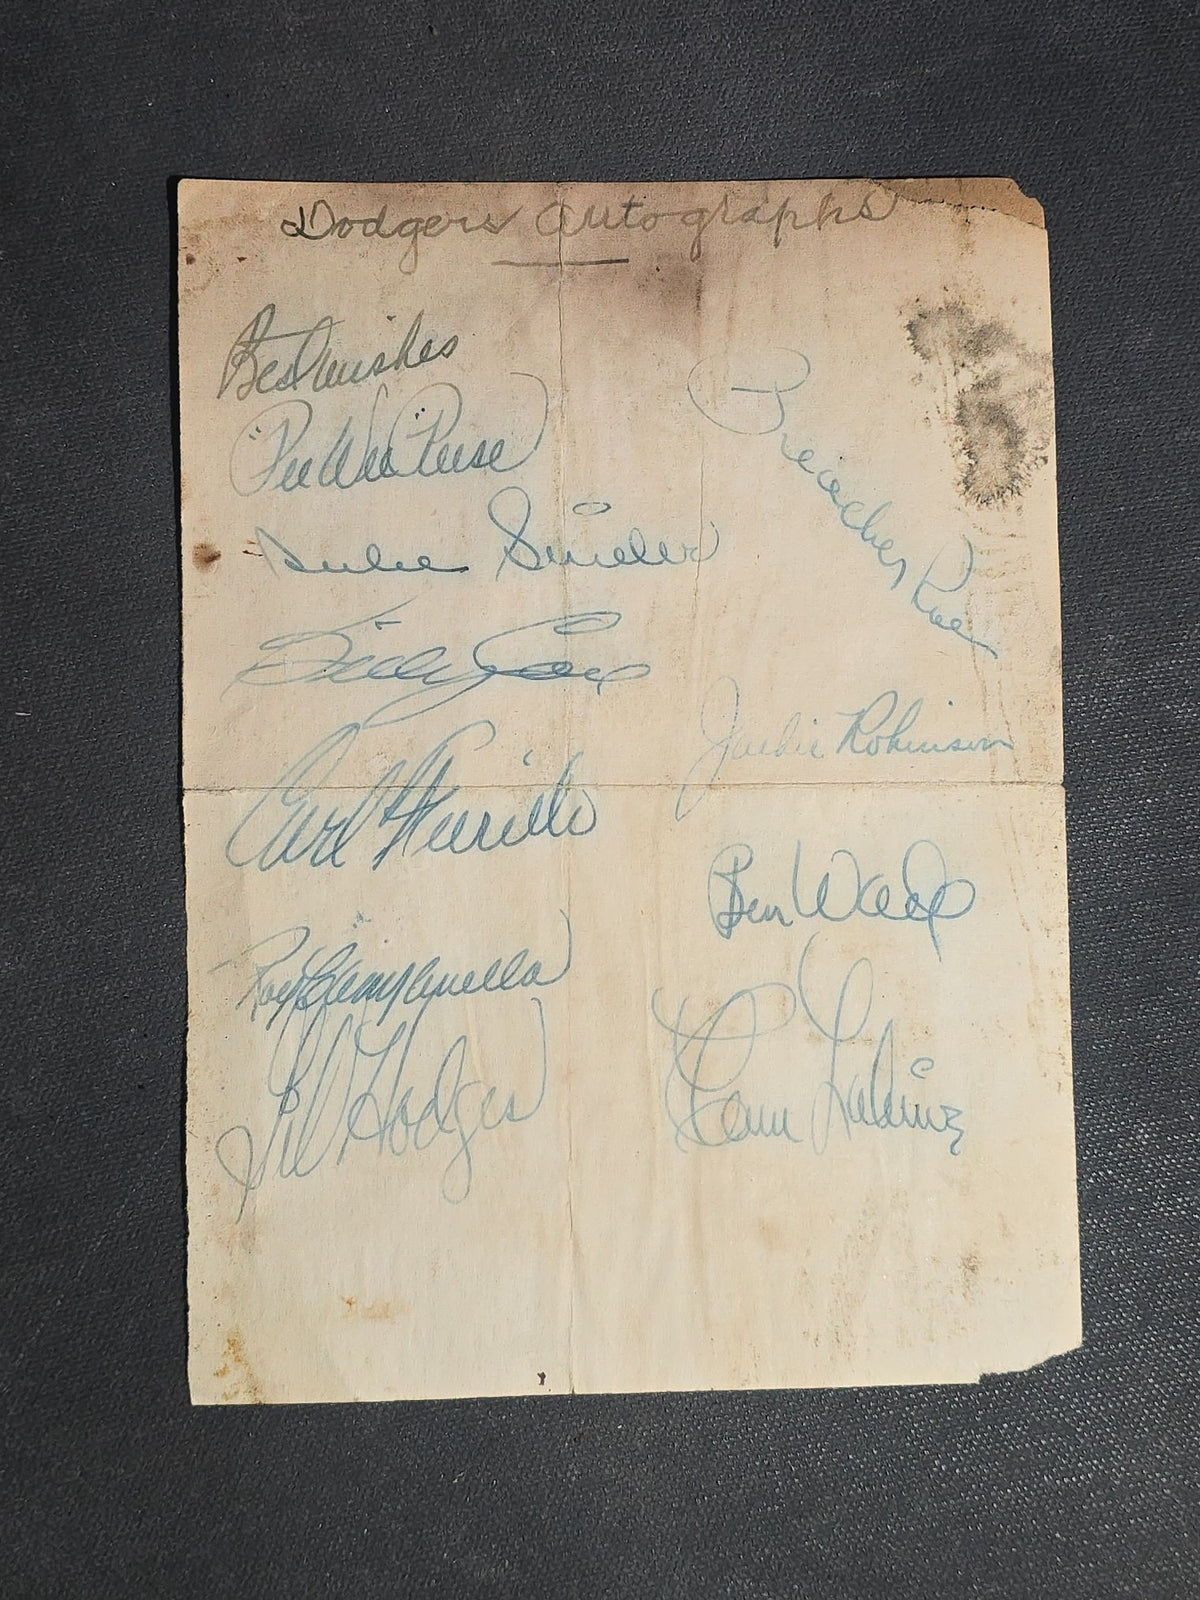 Dodgers Autographs
Best wishes
"Pee Wee" Reese
Duke Snider
Billy Cox
Carl Furillo
Roy Campanella
Gil Hodges
Preacher Roe
Jackie Robinson
Ben Wade
Clem Labine